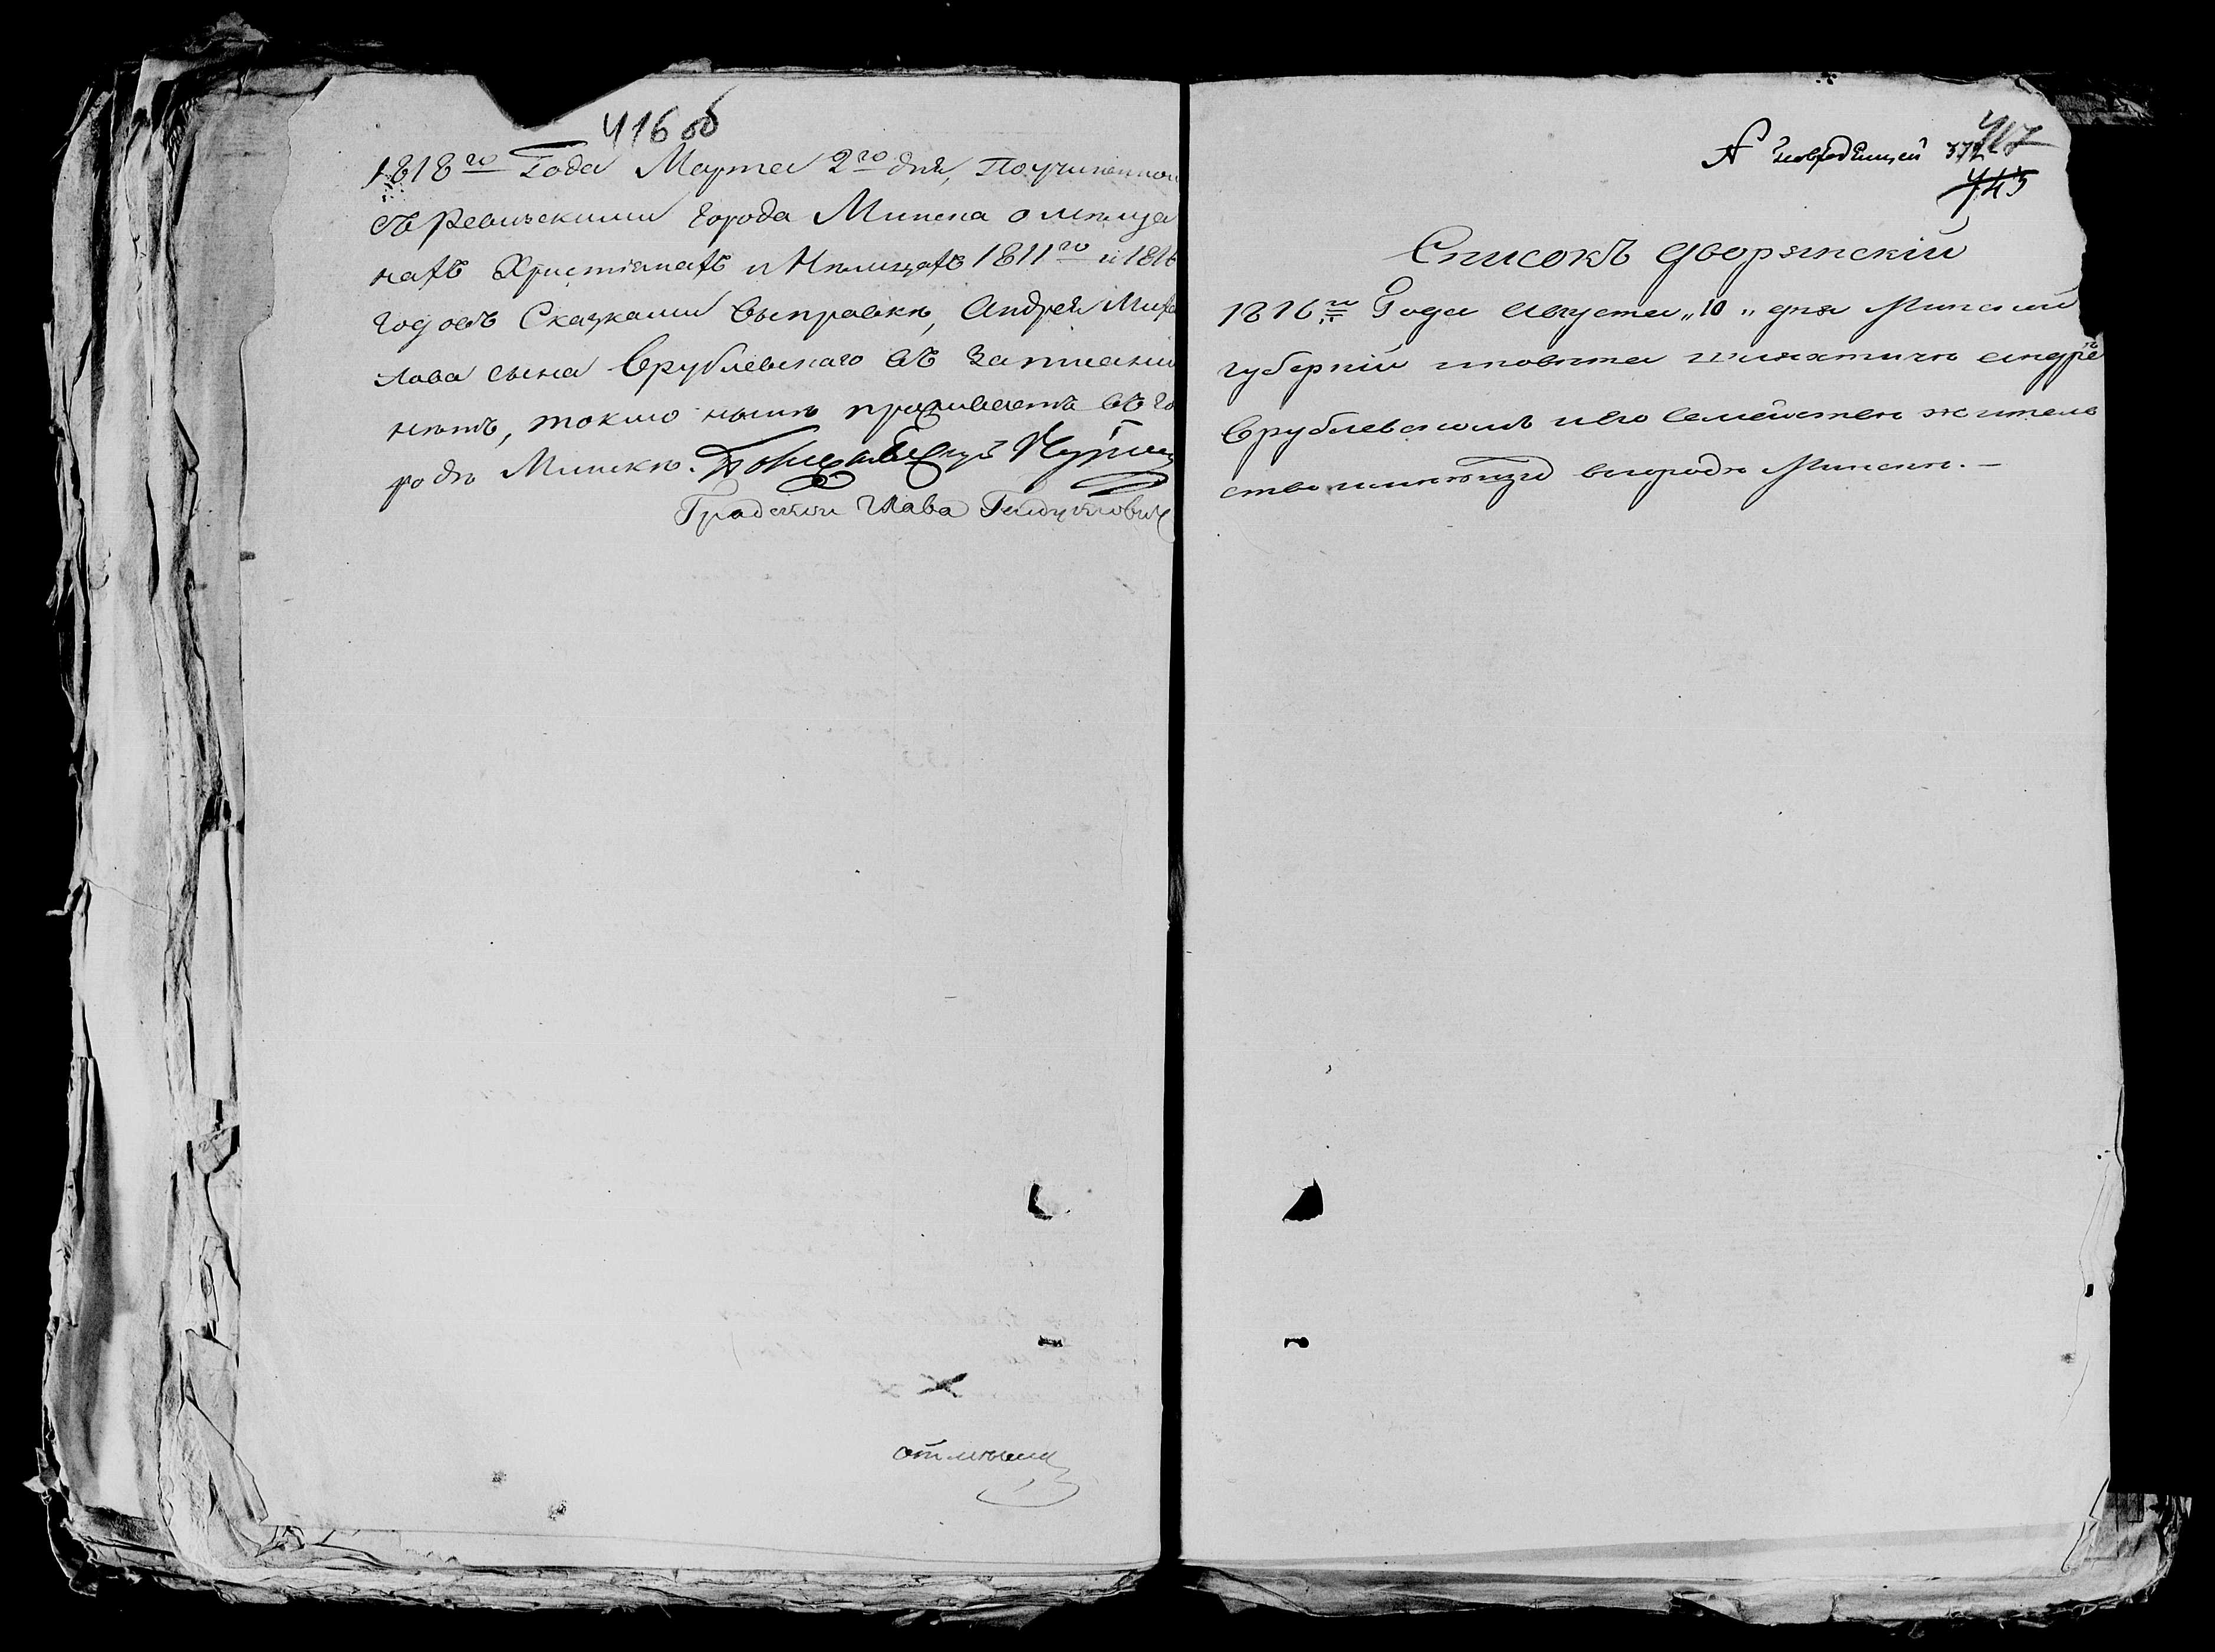 416 об
1818го Года Марта 2го дня, По учиненной
съ Ревизскими города Минска о мѣща
нахъ Християнахъ и Нѣмцахъ 1811го и 1816
годовъ Сказками выправкѣ, Андрей Миха
лова сына Врублевскаго въ Записаніи
нѣтъ, токмо нынѣ проживаетъ въ Го
родѣ Минскѣ.
Градской Глава
417
572
743
Списокъ дворянскій
1816го Года Августа „10„ дня Минской
губерніи и повѣта шляхтичѣ андрѣ
Врублевскомъ и его Семействѣ жителъ
ство имѣющи в городѣ Минскѣ. —